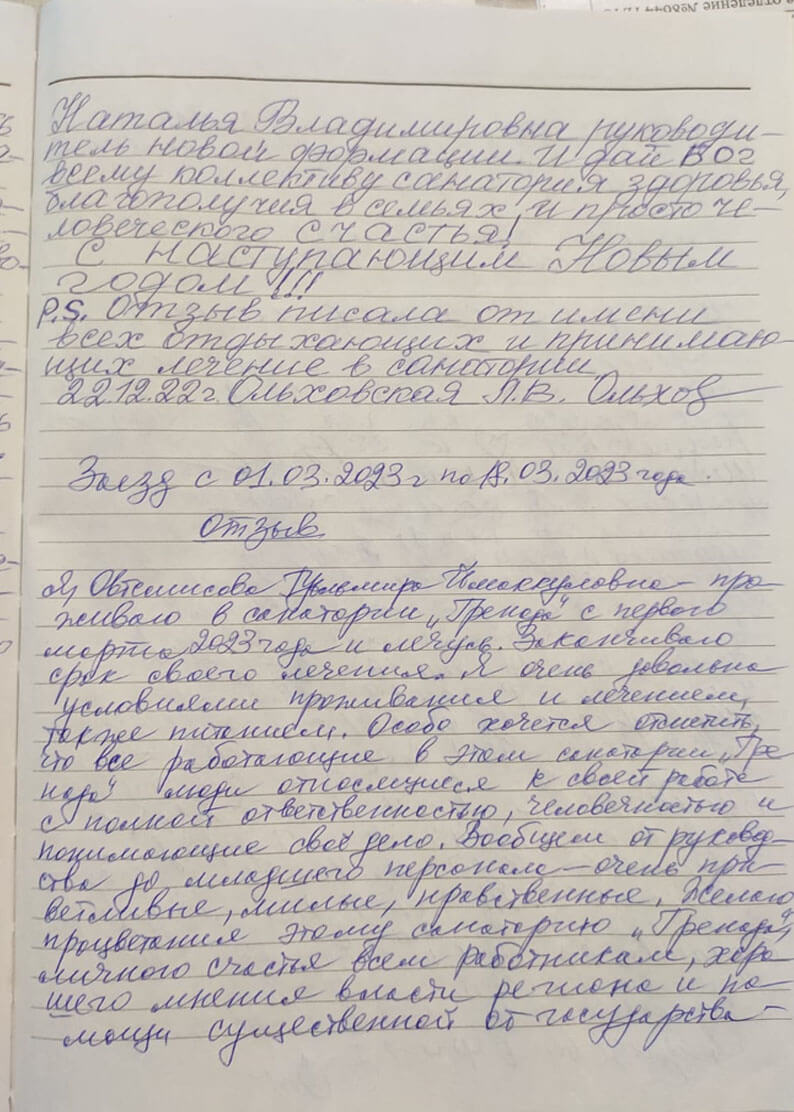 отделение №8644
Наталья Владимировна руководи-
тель новой формации. И дай Бог
всему коллективу санатория здоровья,
благополучия в семьях и просто че-
ловеческого счастья!
С наступающим Новым
годом!!!
P.S. Отзыв писала от имени
всех отдыхающих и принимаю-
щих лечение в санатории
22.12.22г. Ольховская Л.В. Ольхов
Заезд с 01.03.2023г по 18.03.2023 года.
Отзыв
Я, Гульмира - про-
живаю в санатории „Гренада" с первого
марта 2023 года и лечусь. Заканчиваю
срок своего лечения. Я очень довольна
условиями проживания и лечением,
также питанием. Особо хочется отметить,
что все работающие в этом санатории „Гре-
нада" люди относящиеся к своей работе
с полной ответственностью, человечностью и
понимающие своё дело. Вообщем от руковод-
ства до младшего персонала - очень при-
ветливые, милые, нравственные. Желаю
процветания этому санаторию „Гренада",
личного счастья всем работникам, хоро-
шего мнения власти региона и по-
мощи существенной от государства-